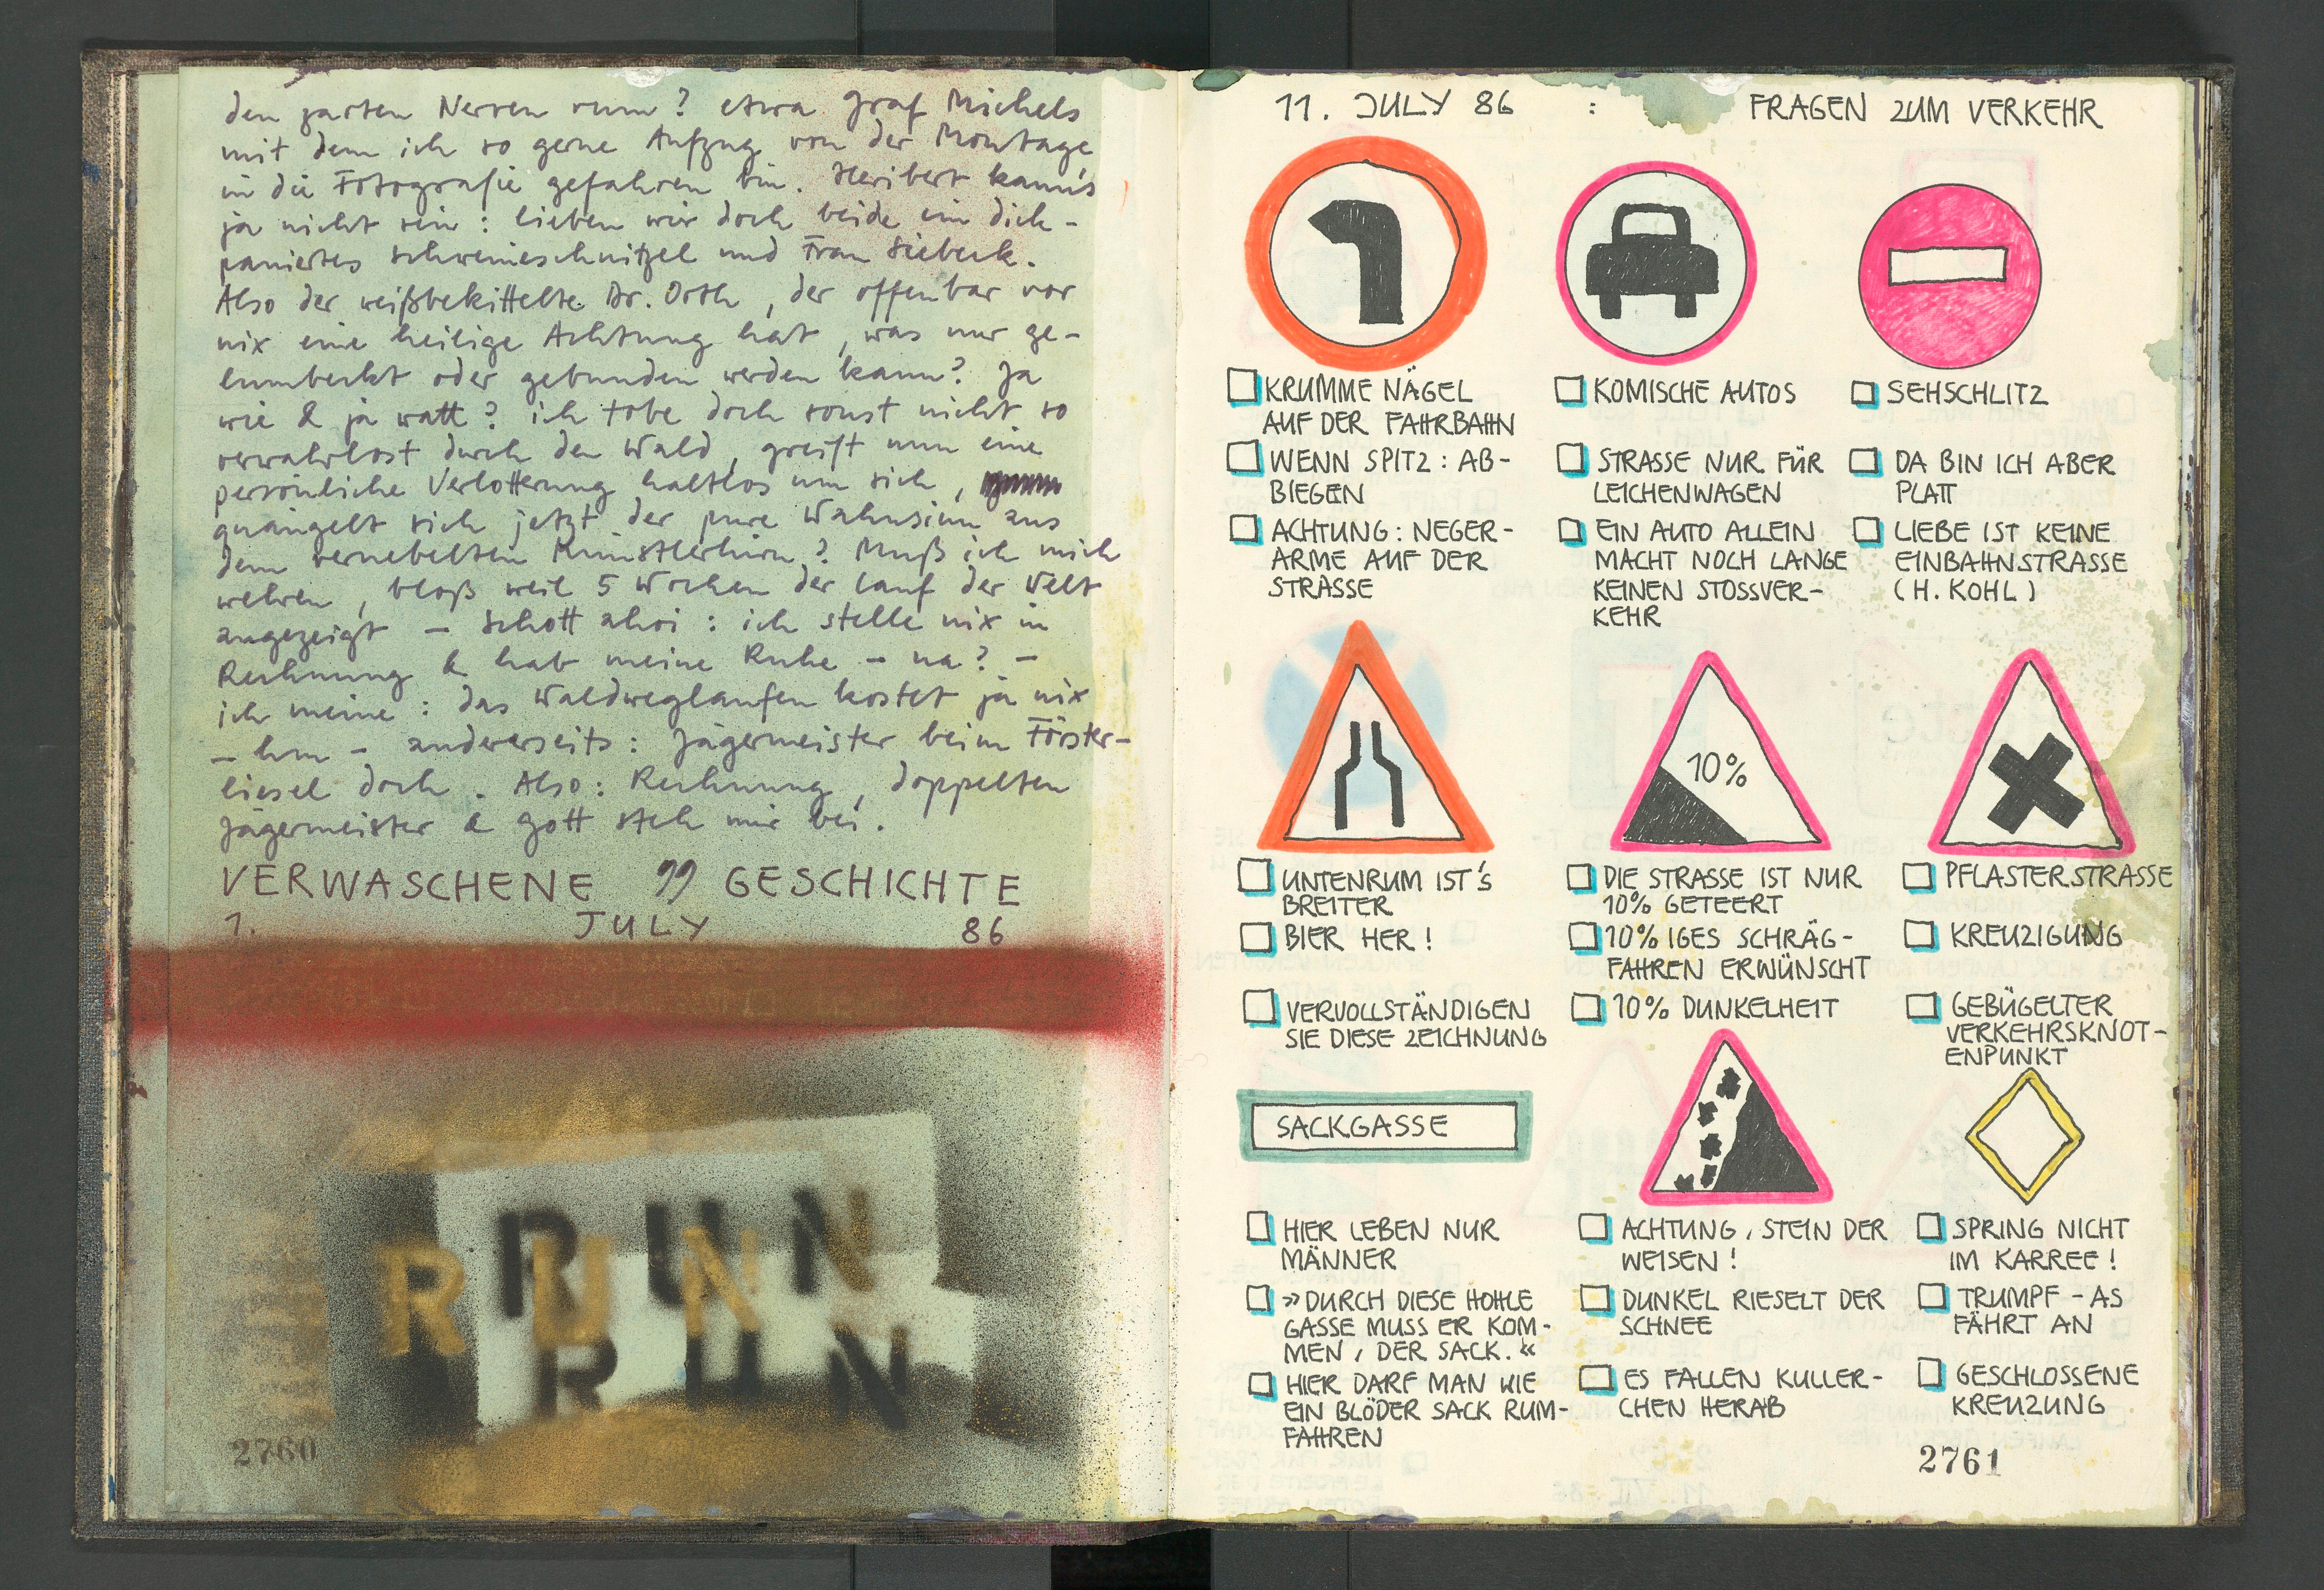 den zarten Nerven rum? etwa Graf Michels
mit dem ich so gerne Aufzug von der Montage
in die Fotografie gefahren bin. Heribert kann's
ja nicht sein: lieben wir doch beide ein dick-
paniertes Schweineschnitzel und Frau Siebeck.
Also der weißbekittelte Dr. Orth, der offenbar vor
nix eine heilige Achtung hat, was nur ge-
lumbeckt oder gebunden werden kann? Ja
wie & ja watt? ich tobe doch sonst nicht so
verwahrlost durch den Wald, greift nun eine
persönliche Verlotterung haltlos um sich,
quängelt sich jetzt der pure Wahnsinn aus
dem vernebelten Künstlerhirn? Muß ich mich
wehren, bloß weil 5 Wochen der Lauf der Welt
angezeigt – Schott ahoi: ich stelle nix in
Rechnung & hab meine Ruhe – na? –
ich meine: das Waldweglaufen kostet ja nix
– hm – andererseits: Jägermeister beim Förster-
liesel doch. Also: Rechnung, doppelten
Jägermeister & Gott steh mir bei.
VERWASCHENE 99 GESCHICHTE
1. JULY 86
RUN
RUN
RUN
2760
11. JULY 86 : FRAGEN ZUM VERKEHR
KRUMME NÄGEL
AUF DER FAHRBAHN
WENN SPITZ: AB-
BIEGEN
ACHTUNG: NEGER-
ARME AUF DER
STRASSE
KOMISCHE AUTOS
STRASSE NUR FÜR
LEICHENWAGEN
EIN AUTO ALLEIN
MACHT NOCH LANGE
KEINEN STOSSVER-
KEHR
SEHSCHLITZ
DA BIN ICH ABER
PLATT
LIEBE IST KEINE
EINBAHNSTRASSE
(H. KOHL)
UNTENRUM IST'S
BREITER
BIER HER!
VERVOLLSTÄNDIGEN
SIE DIESE ZEICHNUNG
10%
DIE STRASSE IST NUR
10% GETEERT
10%IGES SCHRÄG-
FAHREN ERWÜNSCHT
10% DUNKELHEIT
PFLASTERSTRASSE
KREUZIGUNG
GEBÜGELTER
VERKEHRSKNOT-
ENPUNKT
SACKGASSE
HIER LEBEN NUR
MÄNNER
»DURCH DIESE HOHLE
GASSE MUSS ER KOM-
MEN, DER SACK.«
HIER DARF MAN WIE
EIN BLÖDER SACK RUM-
FAHREN
ACHTUNG, STEIN DER
WEISEN!
DUNKEL RIESELT DER
SCHNEE
ES FALLEN KULLER-
CHEN HERAB
SPRING NICHT
IM KARREE!
TRUMPF-AS
FÄHRT AN
GESCHLOSSENE
KREUZUNG
2761